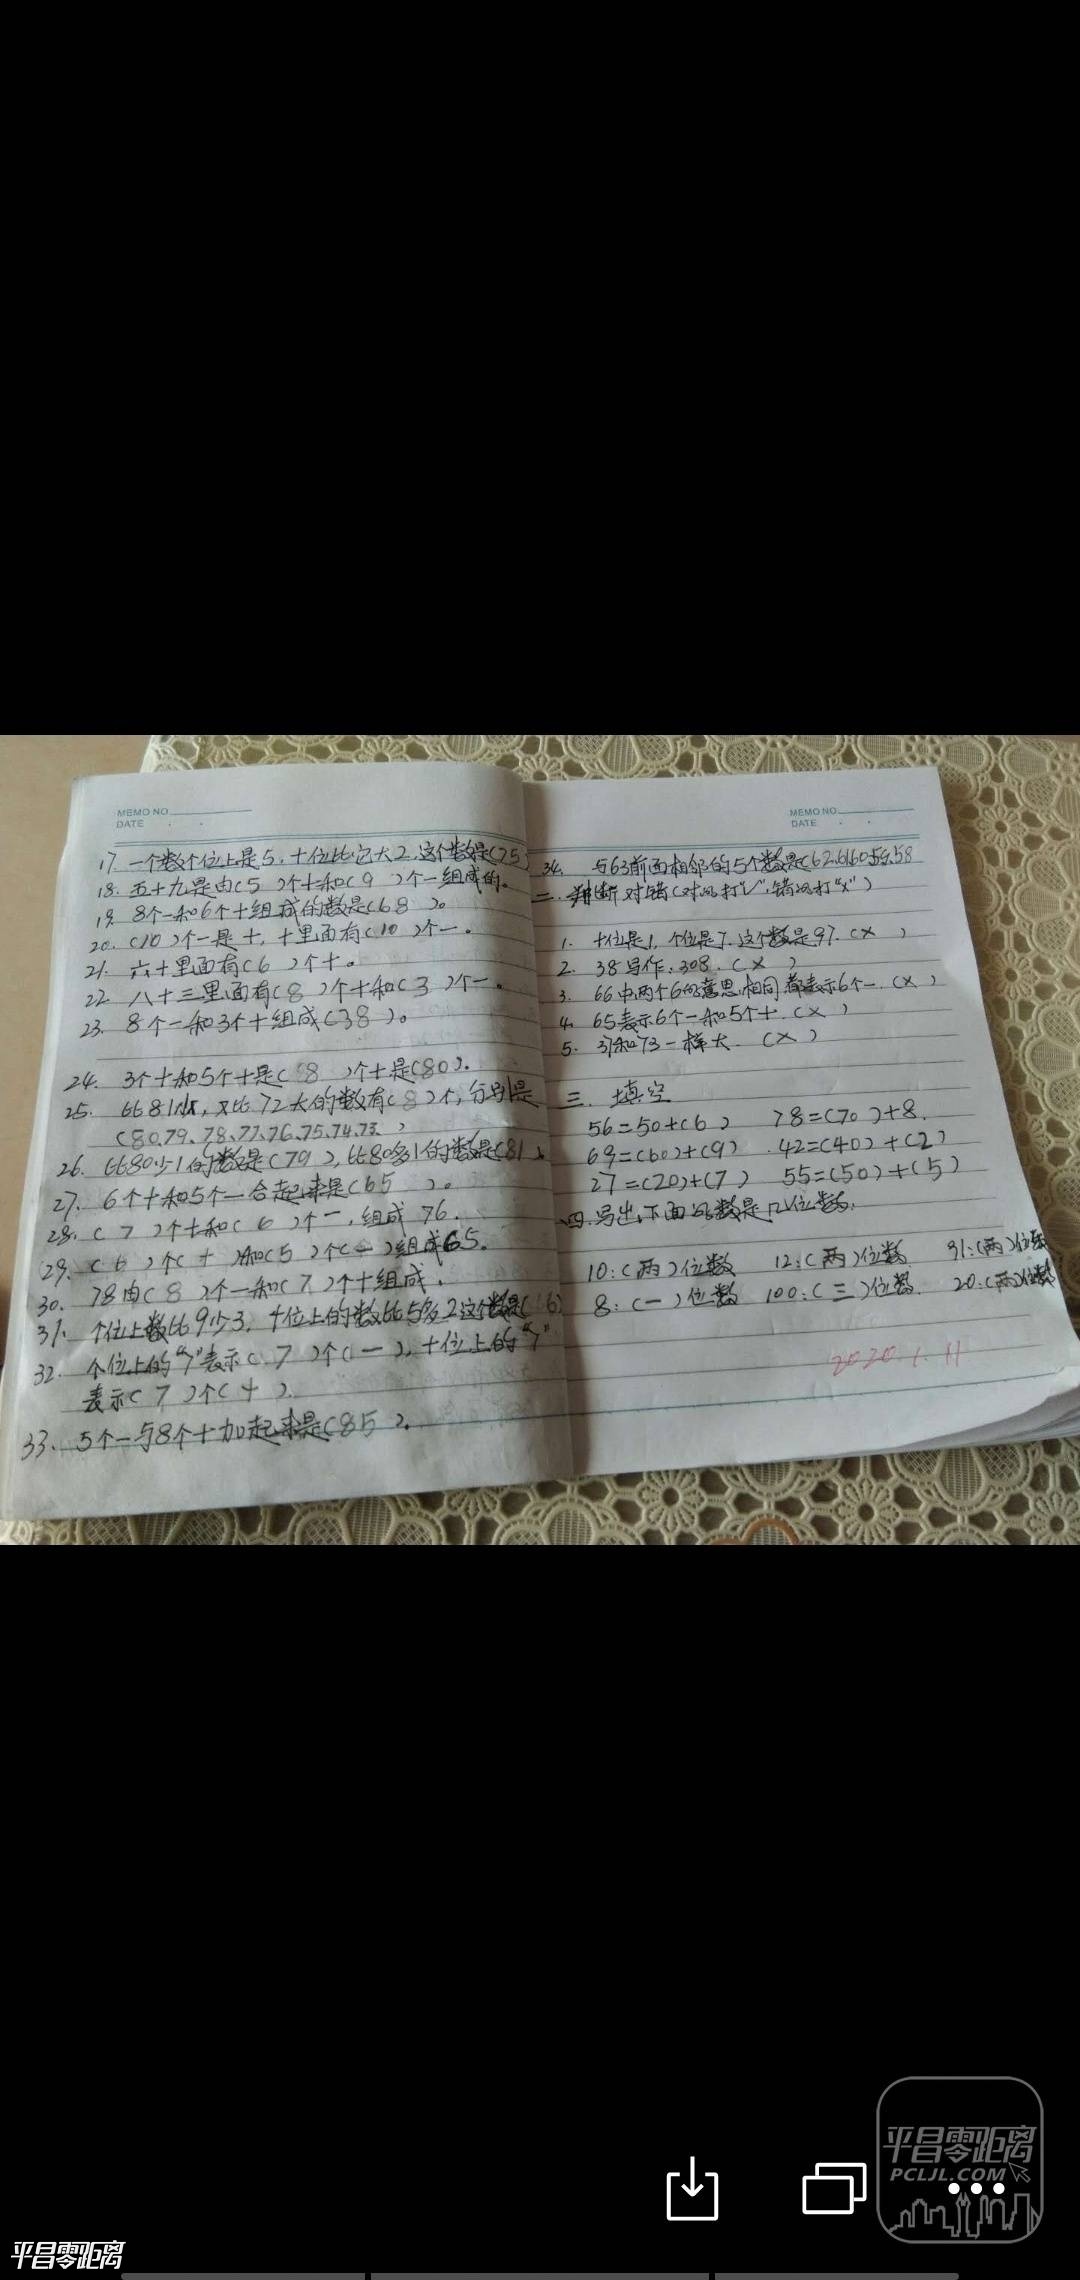 MEMO NO.
DATE
17. 一个数个位上是5,十位比它大2,这个数是(75)
18. 五十九是由(5)个十和(9)个一组成的。
19. 8个一和6个十组成的数是(68)。
20. (10)个一是十,十里面有(10)个一。
21. 六十里面有(6)个十。
22. 八十三里面有(8)个十和(3)个一。
23. 8个一和3个十组成(38)。
24. 3个十和5个十是(8)个十是(80)。
25. 比81小,又比72大的数有(8)个,分别是
(80、79、78、77、76、75、74、73)
26. 比80少1的数是(79),比80多1的数是(81)。
27. 6个十和5个一合起来是(65)。
28. (7)个十和(6)个一,组成76.
29. (6)个(十)和(5)个(一)组成65.
30. 78由(8)个一和(7)个十组成.
31. 个位上数比9少3,十位上的数比5多2这个数是(6)
32. 个位上的“7”表示(7)个(一),十位上的“7”
表示(7)个(十).
33. 5个一与8个十加起来是(85).
MEMO NO.
DATE
34. 与63前面相邻的5个数是(62.61.60.59.58
二. 判断对错(对的打“√”,错的打“x”)
1. 十位是1,个位是7.这个数是97.(x)
2. 38写作:308.(x)
3. 66中两个6的意思相同都表示6个一.(x)
4. 65表示6个一和5个十.(x)
5. 37和73一样大.(x)
三. 填空
56=50+(6) 78=(70)+8.
69=(60)+(9) 42=(40)+(2)
27=(20)+(7) 55=(50)+(5)
四.写出下面的数是几位数.
10:(两)位数 12:(两)位数 91:(两)位数
8:(一)位数 100:(三)位数 20:(两)位数
2020.1.11
平昌零距离
PCLJL.COM
平昌零距离